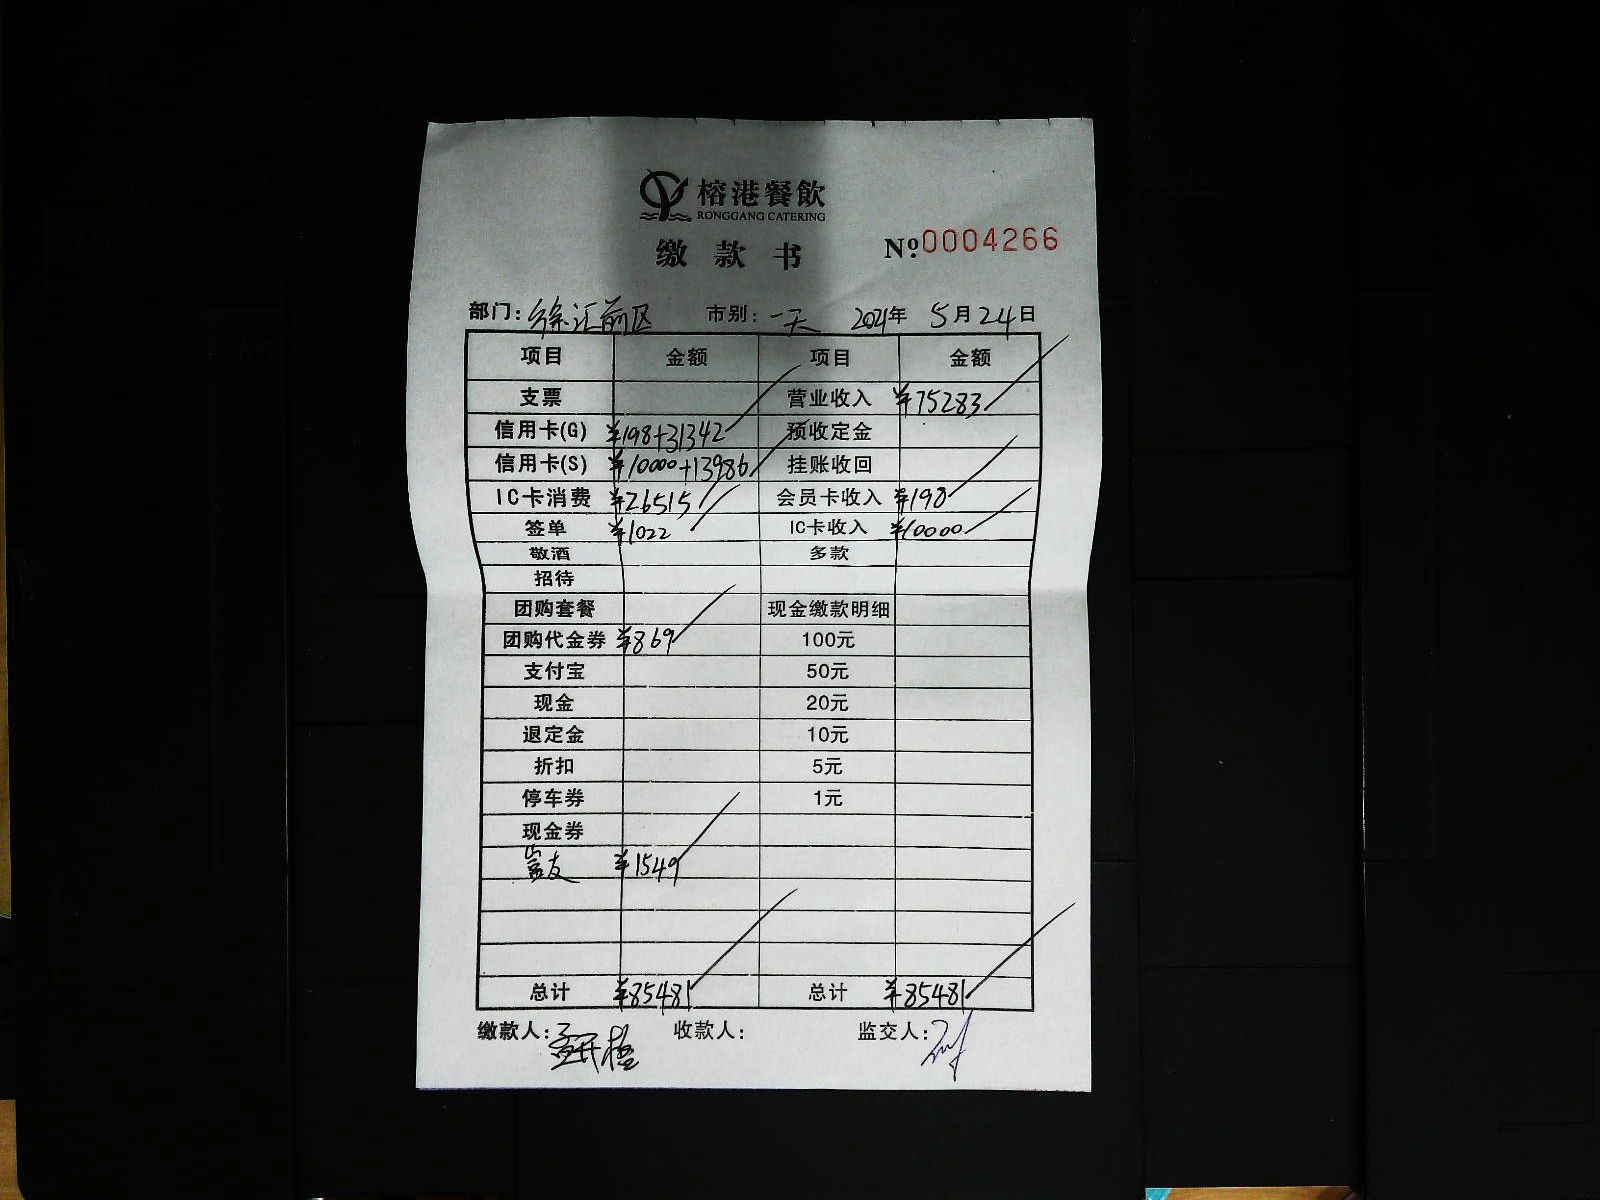 榕港餐飲
RONGGANG CATERING
缴款书 Nº:0004266
部门: 徐汇前区 市别: 一天 2021年 5月24日
项目 金额 项目 金额
支票 营业收入 ¥75283
信用卡(G) ¥198+31342 预收定金
信用卡(S) ¥10000+13986 挂账收回
IC卡消费 ¥26515 会员卡收入 ¥198
签单 ¥1022 IC卡收入 ¥10000
敬酒 多款
招待
团购套餐 现金缴款明细
团购代金券 ¥869 100元
支付宝 50元
现金 20元
退定金 10元
折扣 5元
停车券 1元
现金券
富友 ¥1549
总计 ¥85481 总计 ¥85481
缴款人: 收款人: 监交人: